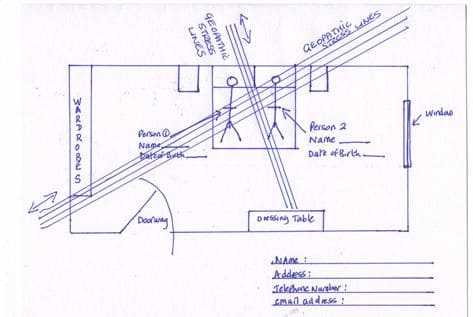 GEOPATHIC
STRESS
LINES
GEOPATHIC
STRESS LINES
WARDROBES
Person ①
Name
Date of Birth
Person 2
Name
Date of Birth
Window
Doorway
DRESSING TABLE
NAME :
Address :
Telephone Number :
email address :